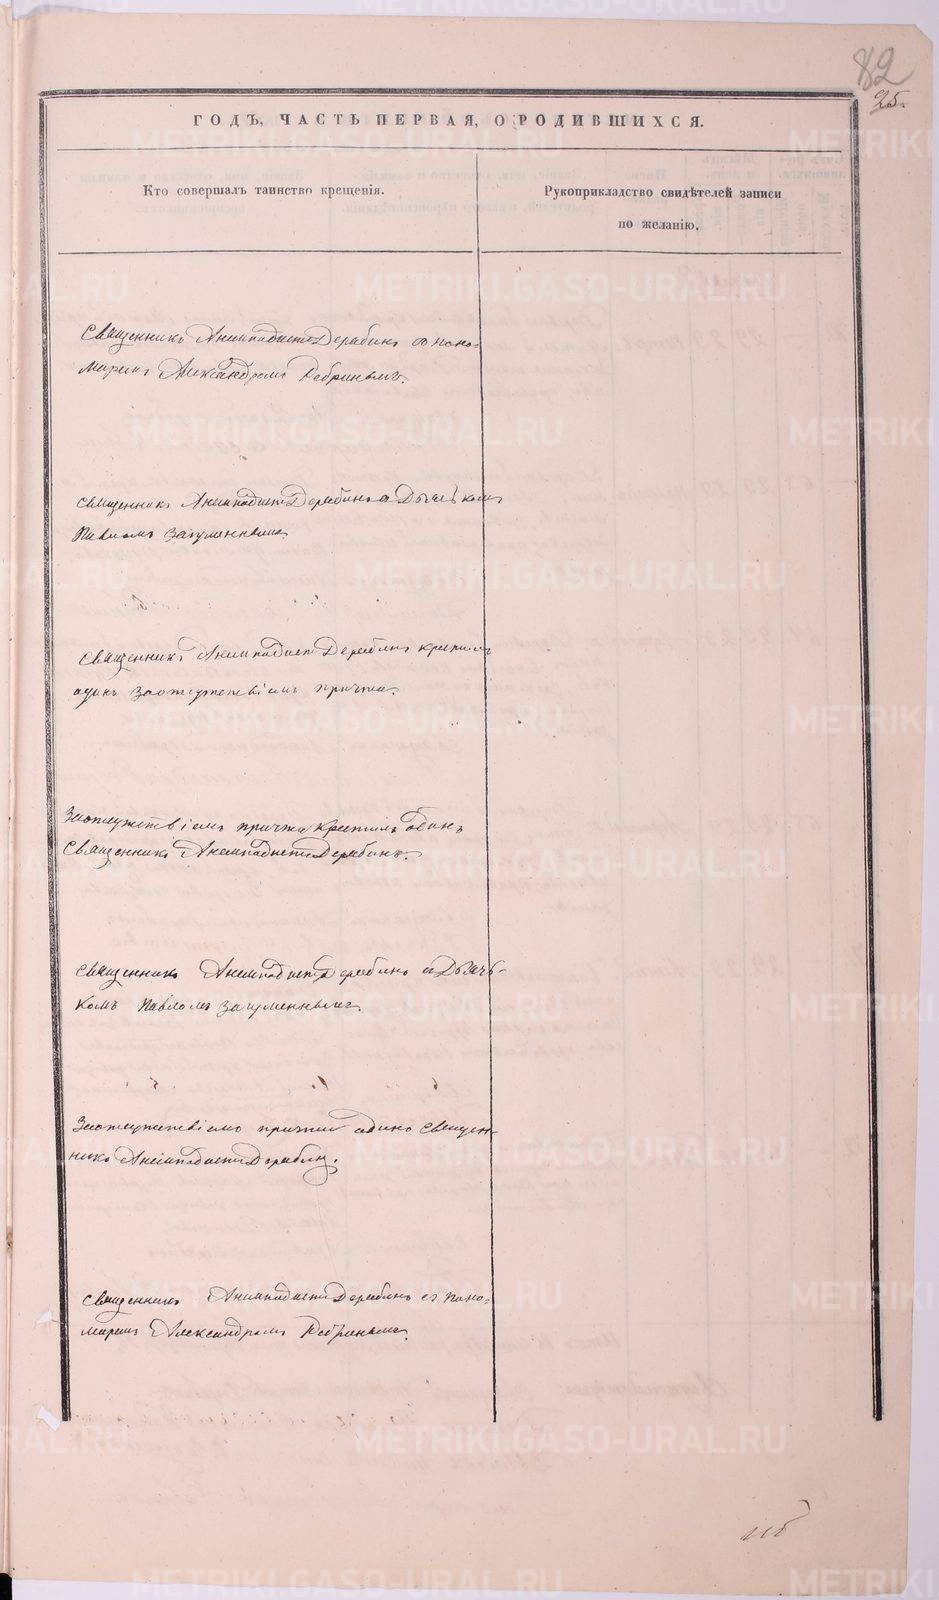 82
25.
ГОДЪ, ЧАСТЬ ПЕРВАЯ, О РОДИВШИХСЯ.
Кто совершалъ таинство крещенія.
Рукоприкладство свидѣтелей записи
по желанію.
Священникъ Анемподистъ Дерябинъ съ поно-
маремъ Александромъ
Священникъ Анемподистъ Дерябинъ съ Дьячькомъ
Павломъ Загуменнымъ.
Священникъ Анемподистъ Дерябинъ крестилъ
одинъ заотсутствіемъ причта.
Заотсутствіемъ причта крестилъ одинъ
Священникъ Анемподистъ Дерябинъ.
Священникъ Анемподистъ Дерябинъ съ Дьячь-
комъ Павломъ Загуменнымъ.
Заотсутствіемъ причта одинъ Священ-
никъ Анемподистъ Дерябинъ.
Священникъ Анемподистъ Дерябинъ съ поно-
маремъ Александромъ
METRIKI.GASO-URAL.RU